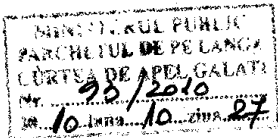 MINISTERUL PUBLIC
PARCHETUL DE PE LANGA
CURTEA DE APEL GALATI
Nr. 93/2010
20 10 luna 10 ziua 27